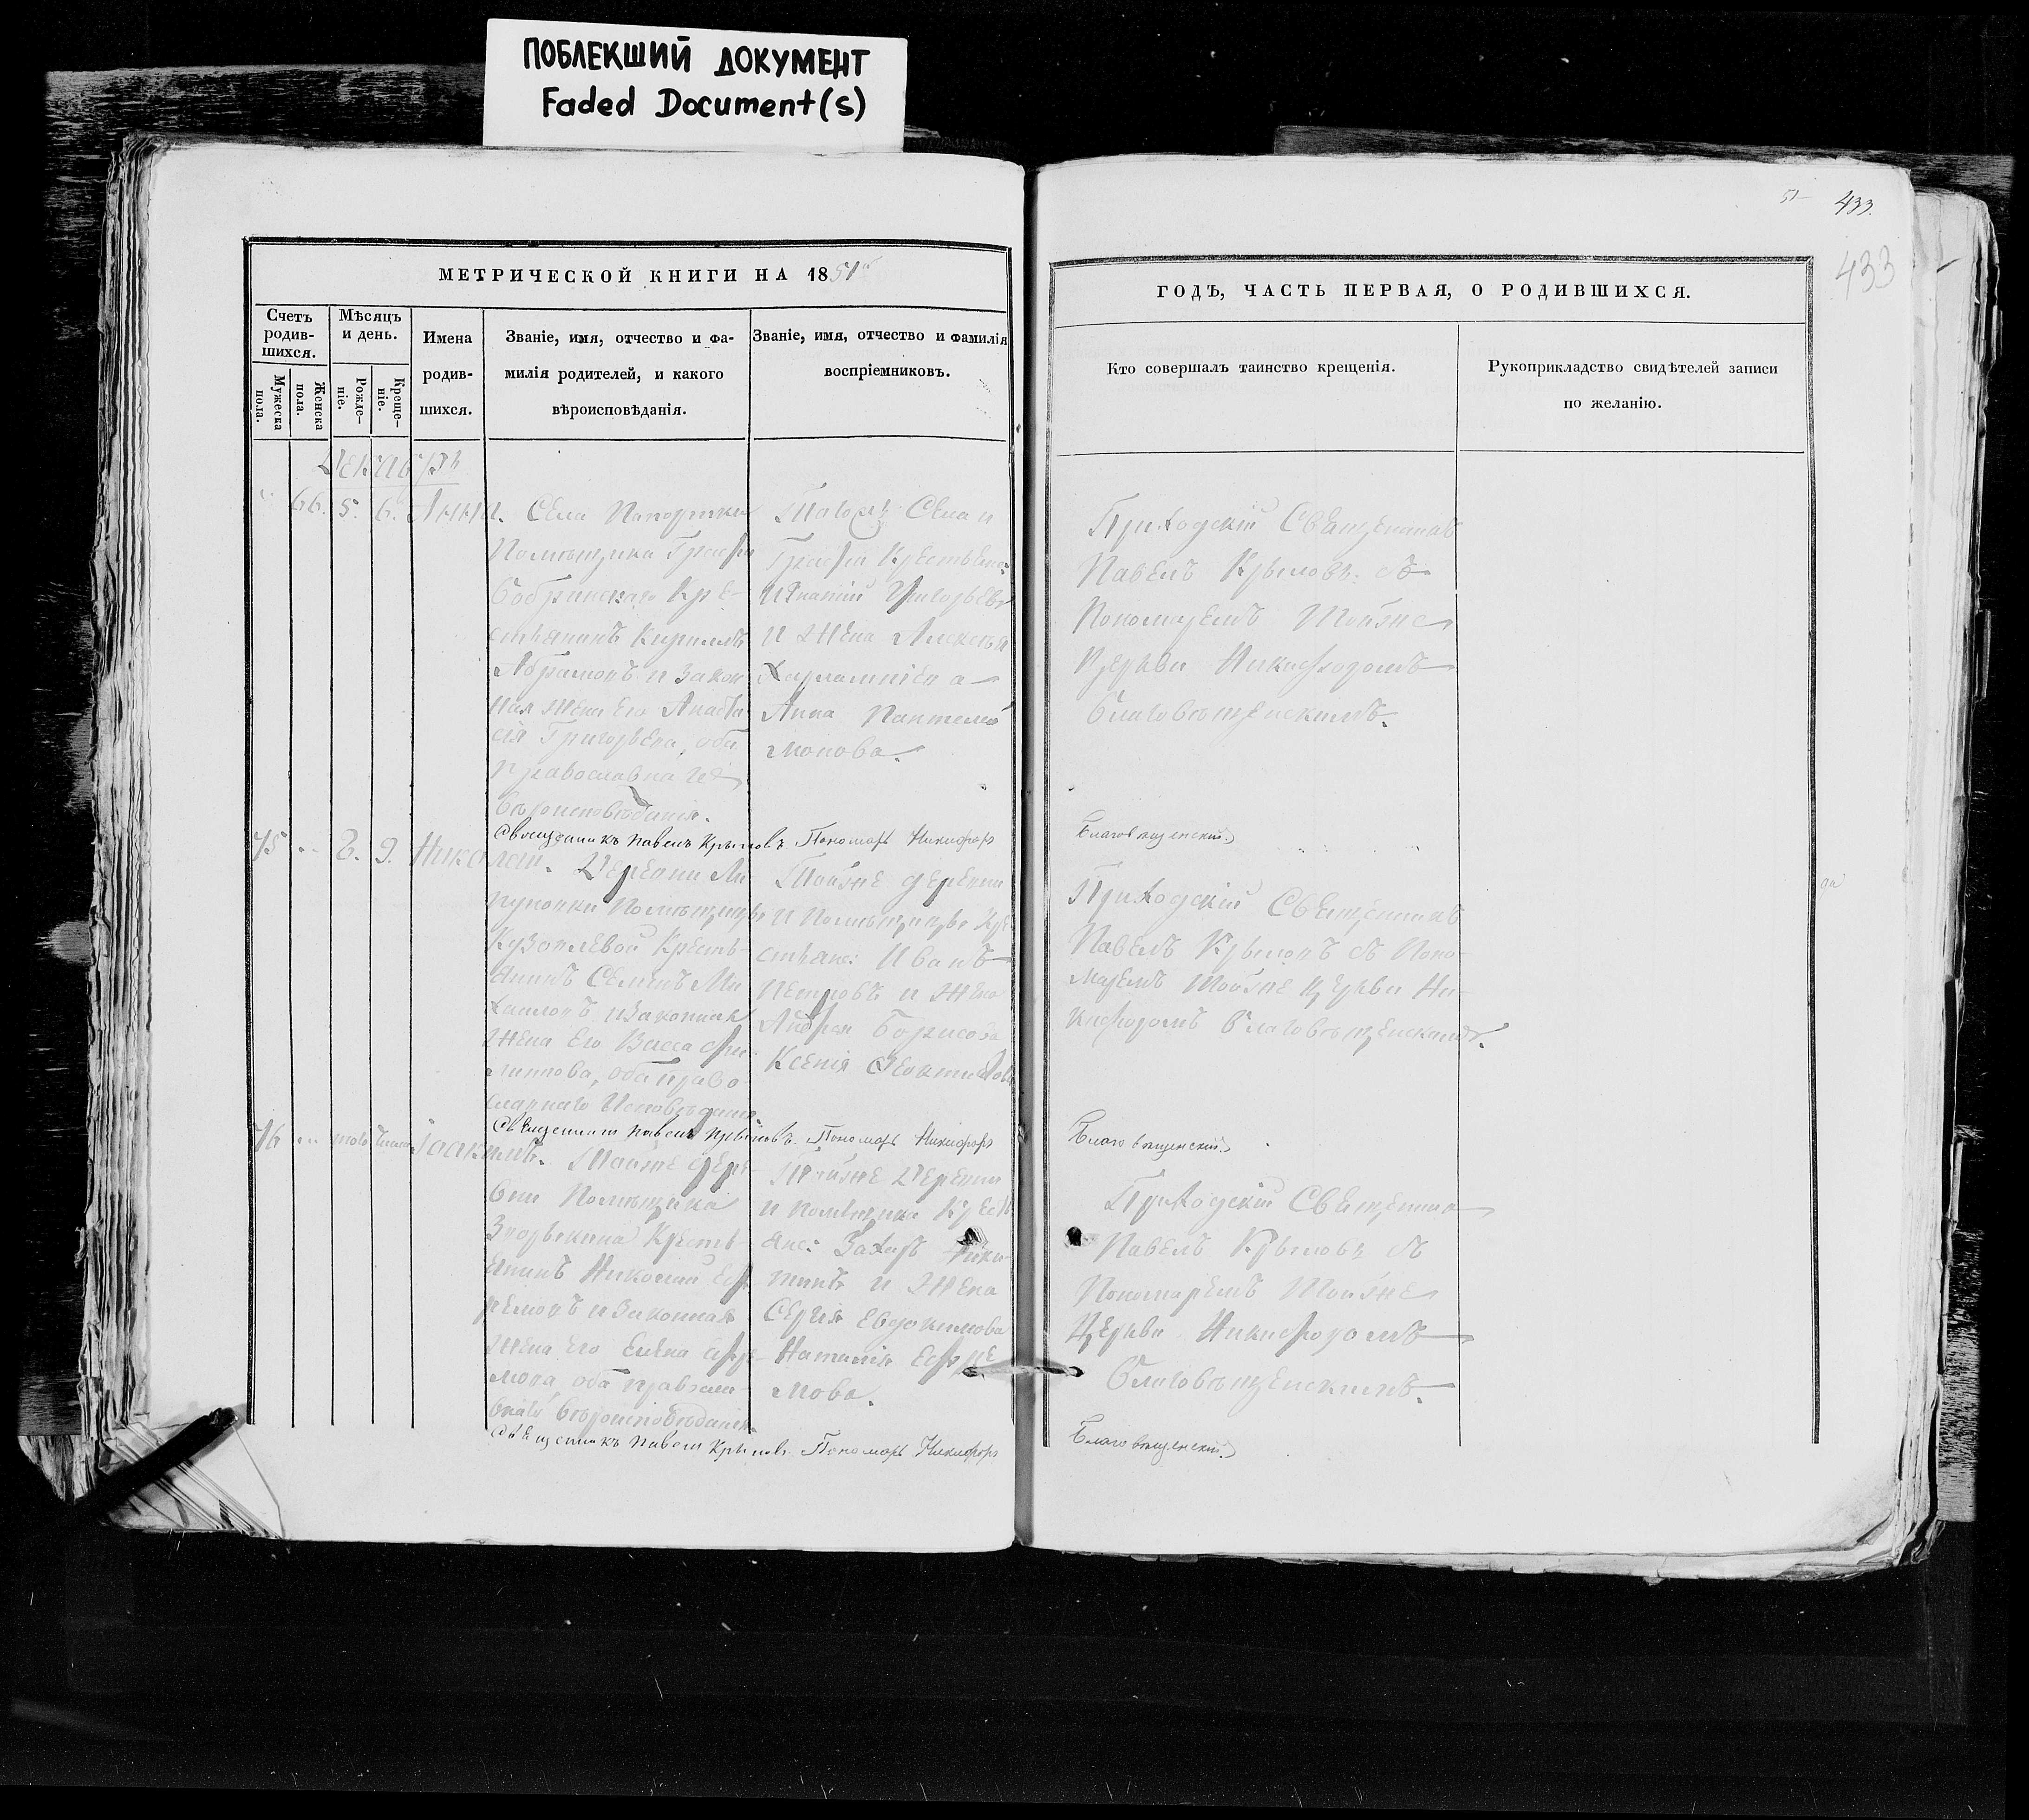 ПОБЛЕКШИЙ ДОКУМЕНТ
Faded Document(s)
433.
433
МЕТРИЧЕСКОЙ КНИГИ НА 1851
Счетъ родив-шихся.
Мужеска пола.
Женска пола.
Мѣсяцъ и день.
Рожде-ніе.
Креще-ніе.
Имена
родив-
шихся.
Званіе, имя, отчество и фа-
милія родителей, и какого
вѣроисповѣданія.
Званіе, имя, отчество и фамилія
воспріемниковъ.
Декабрь
66. 5. 6. Анна.
Села
Помѣщика Графа
Бобринскаго Кре-
стьянинъ Кириллъ
Абрамовъ и закон
ная жена его Анаста
сія Григорьева, оба
православнаго
вѣроисповѣданія.
Тогожъ Села и
Графа Крестьяне:
Игнатій Григорьевъ
и жена
Анна Пантелей
монова.
Священникъ Павелъ Крыловъ. Пономарь Никифоръ
75 8. 9. Николай.
Деревни
Помѣщицы
Кресть-
янинъ Семенъ Ми
хаиловъ и законная
жена его Васса Фи-
липпова, оба право-
славнаго Исповѣданія.
Тойже деревни
и Помѣщицы Кре
стьяне: Иванъ
Петровъ и жена
Борисова
Ксенія
Священникъ Павелъ Крыловъ. Пономарь Никифоръ
76 Іоакимъ.
Тойже дере-
вни Помѣщика
Кресть-
янинъ Николай Еф-
ремовъ и законная
жена его Елена
оба правосла-
внаго вѣроисповѣданія.
Тойже Деревни
и помѣщика Крестья
не: Захаръ Ники-
тинъ и жена
Евдокимова
Наталія Ефре
мова.
Священникъ Павелъ Крыловъ. Пономарь Никифоръ
ГОДЪ, ЧАСТЬ ПЕРВАЯ, О РОДИВШИХСЯ.
Кто совершалъ таинство крещенія.
Рукоприкладство свидѣтелей записи
по желанію.
Приходскій Священникъ
Павелъ Крыловъ съ
Пономаремъ Тойже
Церкви Никифоромъ
Благовѣщенскимъ.
Благовѣщенскій.
Приходскій Священникъ
Павелъ Крыловъ съ Поно-
маремъ Тойже Церкви Ни-
кифоромъ Благовѣщенскимъ.
Благовѣщенскій.
Приходскій Священник
Павелъ Крыловъ съ
Пономаремъ Тойже
Церкви Никифоромъ
Благовѣщенскимъ.
Благовѣщенскій.